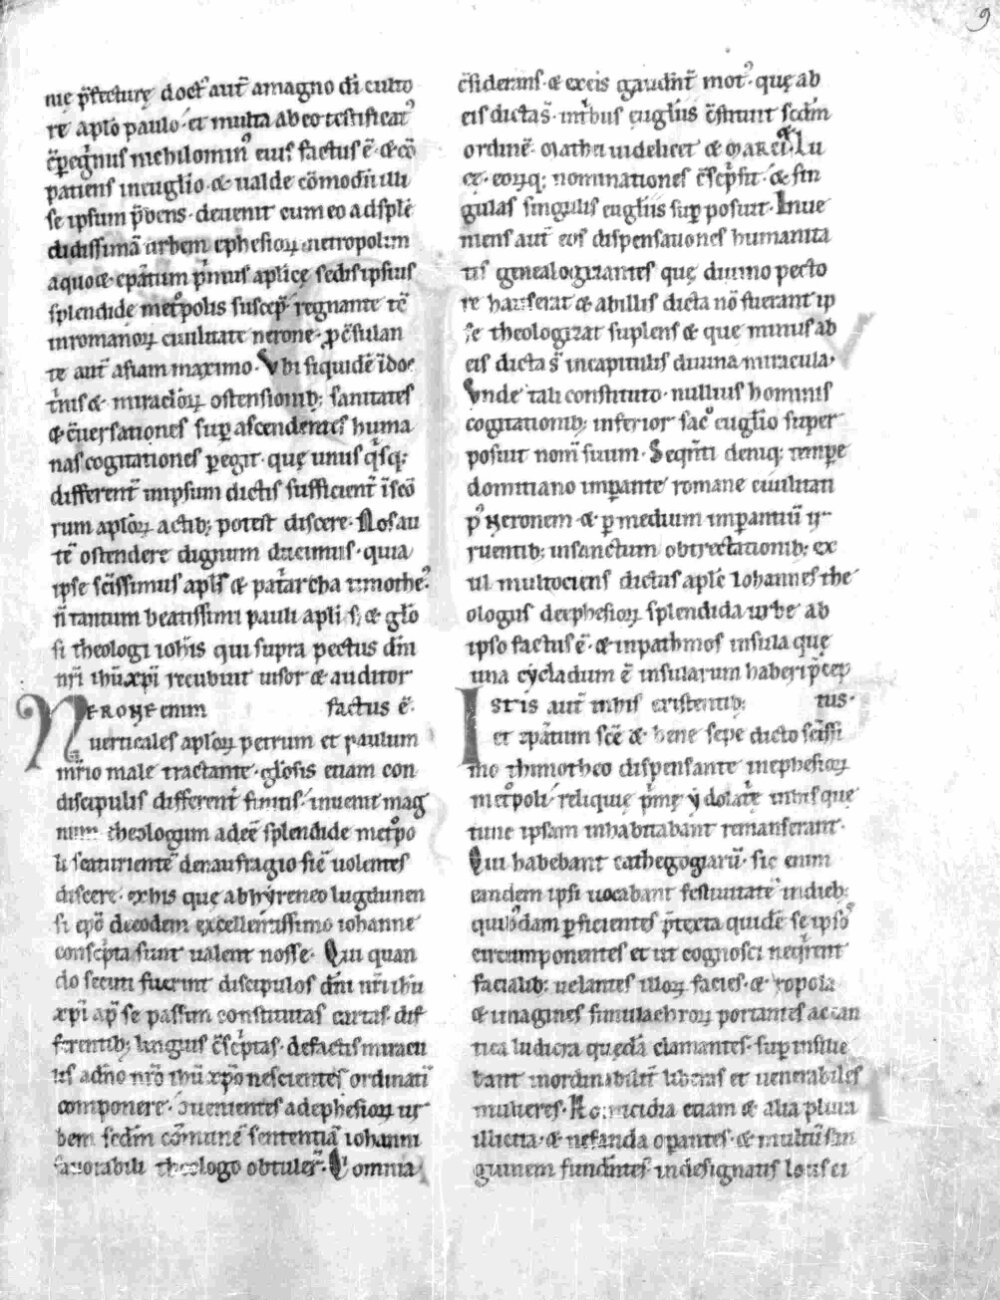 9
nię p̄fecturę doct᷒ aut̄ a magno dī culto
re aplo paulo· et multa ab eo testificat᷒
c̄peḡnus nichilomin᷒ eius factus ē· & cō
patiens in euglio· & ualde cōmodū illi
se ipsum p̄bens· deuenit cum eo ad splē
didissimā urbem ephesioꝝ metropolim
a quo & ep̄atum p̄mus aplicę sedis ipsius
splendide met᷒polis suscep̄· regnante tē
in romanoꝝ ciuilitate nerone· ꝓc̄sulan
te aut̄ asiam maximo· Vbi siquidē i doc
t̄nis & miraclo᷒ꝝ ostensionib; sanitates
& c̄uersationes sup ascendentes huma
nas cogitationes pegit· quę unus q̄sq;
different̄ in ipsum dictis sufficient̄ ī scō
rum aploꝝ actib; potest discere· Nos au
tē ostendere dignum ducimus· quia
ipse sc̄issimus apls & pat̄archa timothe᷒
n̄ tantum beatissimi pauli apli s; & glo
si theologi ioh̄is qui supra pectus dn̄i
nr̄i ihū xp̄i recubuit uisor & auditor
NERONE enim factus ē·
uerticales aploꝝ petrum et paulum
mr̄io male tractante· glosis etiam con
discipulis different̄ finitis· inuenit mag
num theologum ad eē splendide met᷒po
li scaturientē de naufragio sic̄ uolentes
discere· ex his que ab hyreneo lugdunen
si ep̄o de eodem excellentissimo iohanne
consc̄pta sunt ualent nosse· Qui quan
do secuti fuerint discipulos dn̄i nr̄i ihū
xp̄i ap̄ se passim constitutas cartas dif
ferentib; linguis c̄sc̄ptas· de factis miracu
lis a dn̄o nr̄o ihū xp̄o nescientes ordinati᷒
componere· Iuenientes ad ephesioꝝ ur
bem scdm cōmunē sententiā iohanni
fauorabili theologo obtuler̄· Qͥ omnia
c̄siderans· & ex eis gaudint̄ mot᷒· quę ab
eis dicta s̄ in t̄bus euglīis c̄struit scdm
ordinē· Mathei uidelicet & MARCI· Lu
cę· eoꝝq; nominationes c̄sc̄psit· & sin
gulas singulis euglīis sup posuit· Inue
niens aut̄ eos dispensationes humanita
tis genealogizantes quę diuino pecto
re hauserat & ab illis dicta nō fuerant ip
se theologizat suplens & que minus ab
eis dicta s̄ in capitulis diuina miracula·
Vnde tali constituto· nullius hominis
cogitationib; inferior sac᷒ euglio super
posuit nom̄ suum· Seqn̄ti deniq; tempe
domitiano impante romane ciuilitati
p᷒ Neronem & p medium impantiū ir
ruentib; in sanctum obtrectationib; ex
ul multociens dictus apls Iohannes the
ologus de ephesioꝝ splendida urbe ab
ipso factus ē· & in pathmos insula quę
una cycladum ē insularum haberi p̄cep
ISTIS aut̄ in his existentib; tus·
et ep̄atum scē & bene sepe dicto sc̄issi
mo thimotheo dispensante in ephesioꝝ
met᷒poli· reliquię p̄mę ydolat̄e in his que
tunc ipsam inhabitabant remanserant·
Qui habebant cathegogiarū· sic enim
eandem ipsi uocabant festiuitatē in dieb;
quibusdam pficientes p̄texta quidē se ipso᷒
circumponentes et ut cognosci neq̄rent
facialib; uelantes illoꝝ facies· & ropola
& imagines simulachroꝝ portantes ac can
tica ludicra quędā clamantes· sup insilie
bant inordinabilit̄ liberas et uenerabiles
mulieres· Homicidia etiam & alia plura
illicita· & nefanda opantes· & multū san
guinem fundentes· in designatis locis ci